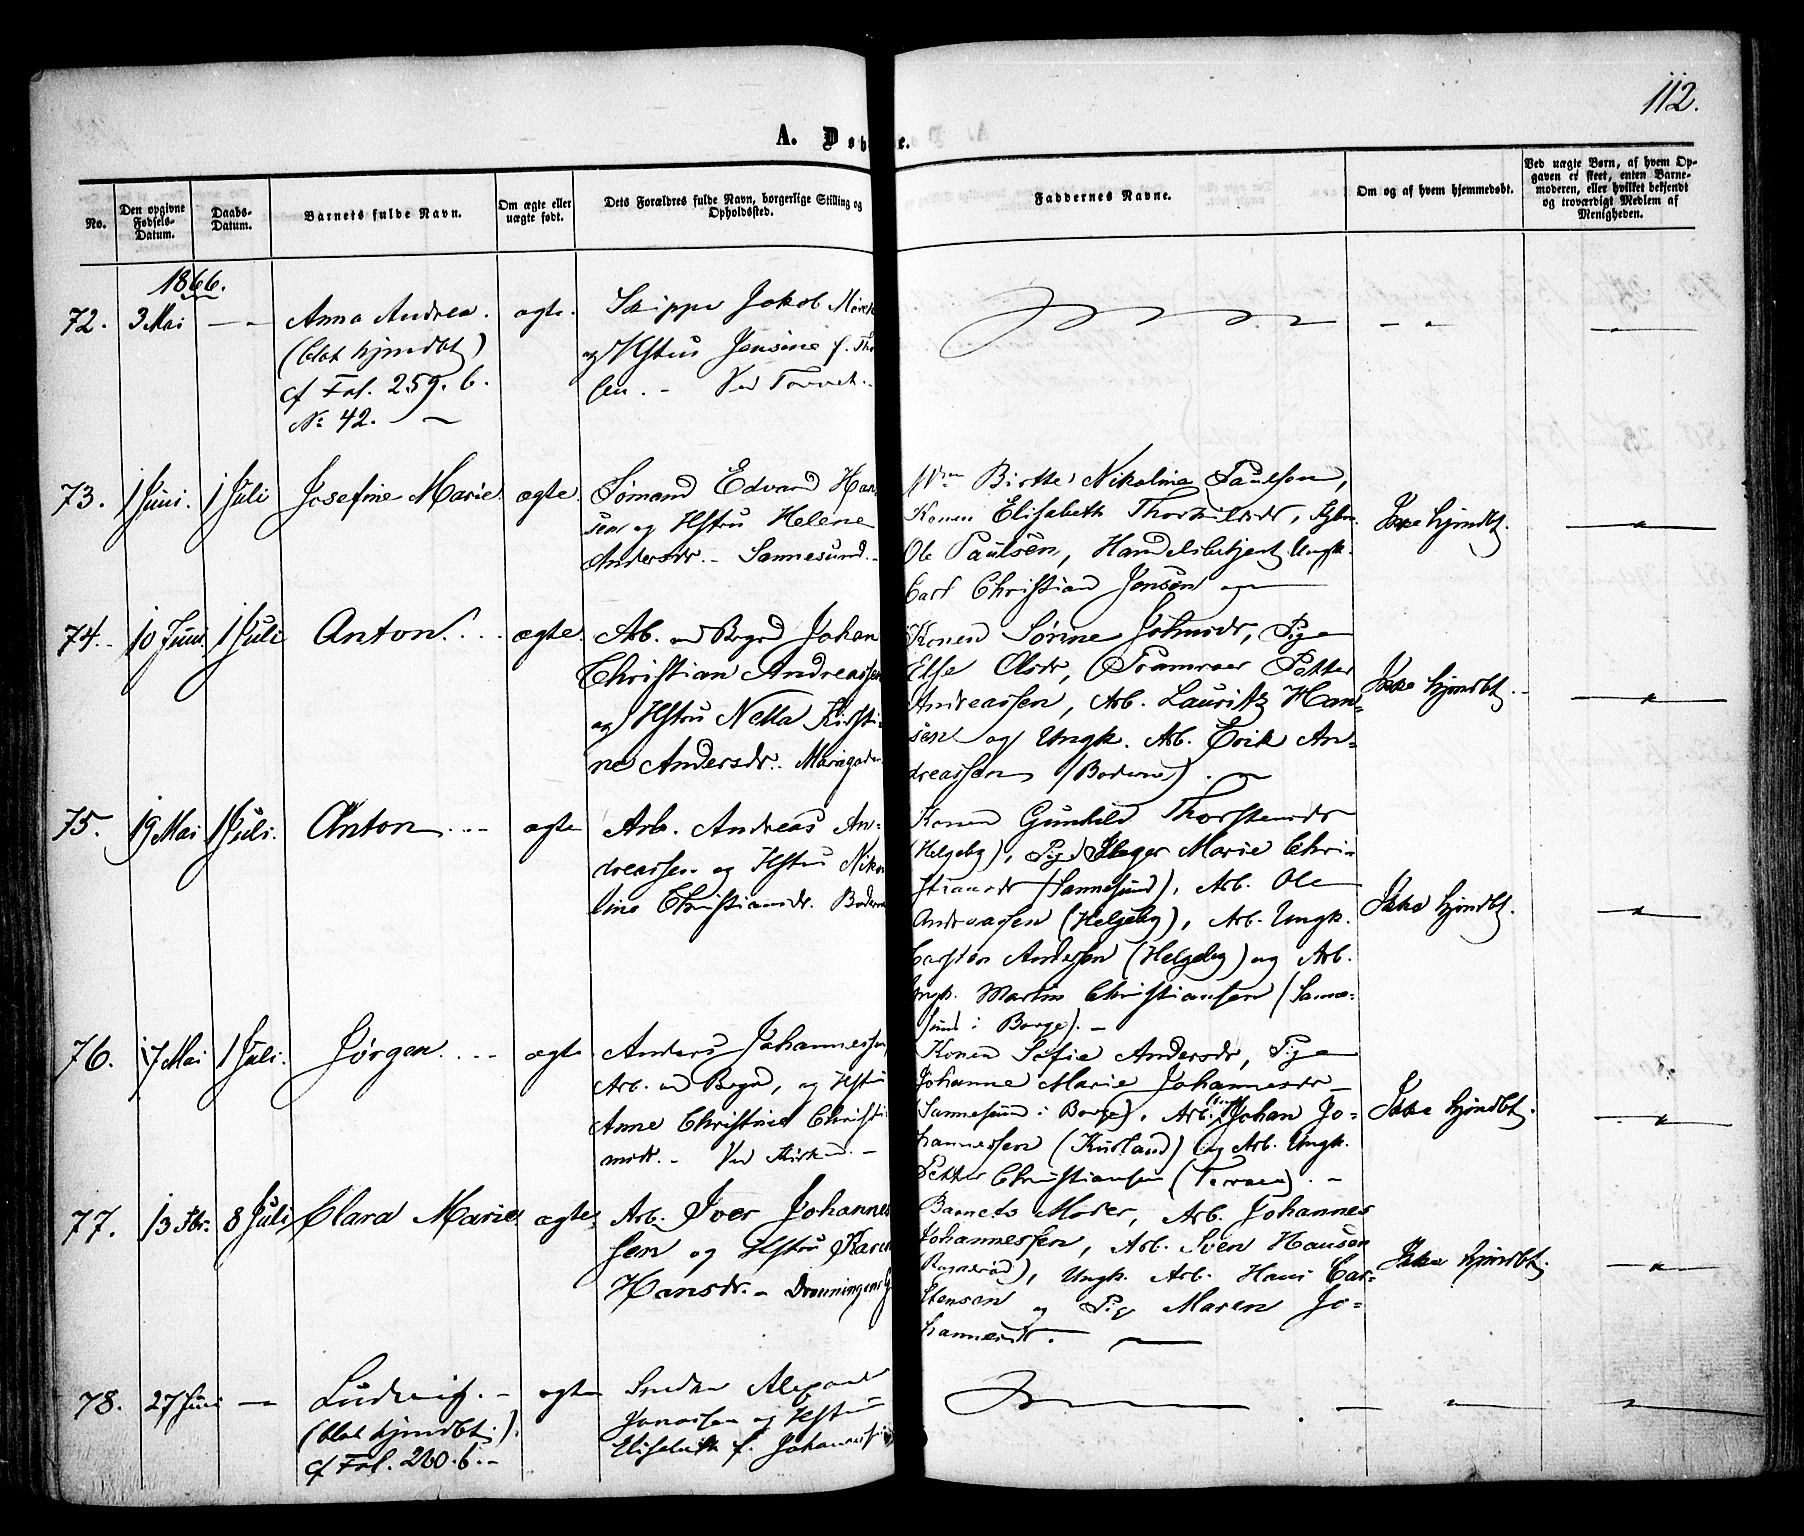 112.
A. Døb
e.
No.
Den opgivne Fødsels-Datum.
Daabs-Datum.
Barnets fulde Navn.
Om ægte eller uægte født.
Dets Forældres fulde Navn, borgerlige Stilling og Opholdssted.
Faddernes Navne.
Om og af hvem hjemmedøbt.
Ved uægte Børn, af hvem Opgaven er skeet, enten Barnemoderen, eller hvilket bekjendt og troværdigt Medlem af Menigheden.
1866.
72. 3 Mai — Anna Andrea. ægte. Skipper Jakob
(blot hjmdbt) og Hstru Jensine f.
cf Fol. 259. b. Ved Torvet.
No 42. —
73. 1 Juni. 1 Juli Josefine Marie ægte. Sømand Edvard Han
sen og Hstru Helene
Andersdr. - Sannesund. -
Birthe Nikoline Paulsen,
Konen Elisabeth Thorkildsdr,
Ole Paulsen, Handelsbetjent Ungk.
Carl Christian Jensen
Ikke hjmdbt.
74. 10 Juni. 1 Juli Anton. ægte. Arb. ved Brget Johan
Christian Andreassen
og Hstru Netta Kirsti-
ne Andersdr.
Konen Sørine Johnsdr, Pige
Else Olsdr, Petter
Andreassen, Arb. Lauritz Han-
sen og Ungk. Arb. Erik An-
dreassen
Ikke hjmdbt. -
75. 19 Mai 1 Juli. Anton. ægte Arb. Andreas An-
dreassen og Hstru Niko
line Christiansdr.
Konen Gunhild Thorstensdr
(Helgeby), Pige Marie Chri-
stiansdr (Sannesund), Arb. Ole
Andreassen (Helgeby), Arb. Ungk.
Carsten Andersen (Helgeby) og Arb.
Ungk. Martin Christiansen (Sanne-
sund i Borge). -
Ikke hjmdbt.
76. 17 Mai 1 Juli. Jørgen. ægte. Anders Johannessen,
Arb. ved Brget, og Hstru
Anne Christine Christi
Ved Kirken. -
Konen Sofie Andersdr, Pige
Johanne Marie Johannesdr
Sannesund i Borge), Arb. Johan Jo-
hannessen (Kurland) og Arb. Ungk.
Petter Christiansen
Ikke hjmdbt.
77. 13 Fbr. 8 Juli Clara Marie ægte. Arb. Iver Johannes
sen og Hstru Karen
Hansdr. - Dronningens
Barnets Moder, Arb. Johannes
Johannessen, Arb. Sven Hansen
Ungk. Arb. Hans Car-
stensen og Pige Maren Jo-
hannesdr.
Ikke hjmdbt.
78. 27 Juni — Ludvig. - ægte Snedker
(blot hjmdbt.) Jonassen og Hstru
cf Fol. 260. b. - Elisabeth f.